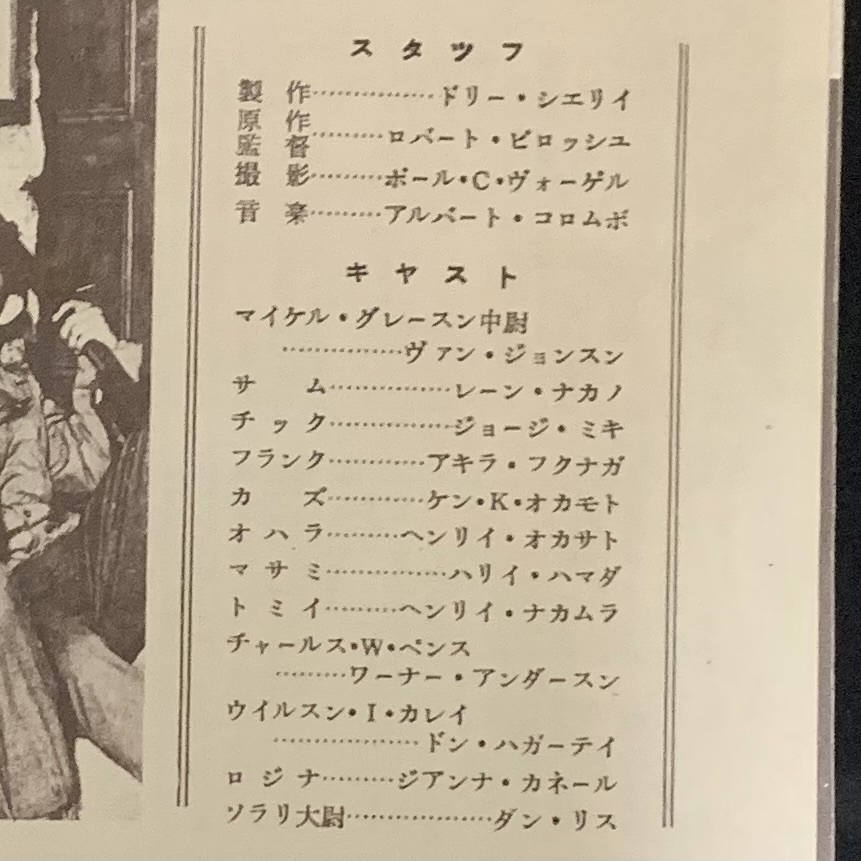 スタッフ
製作……………ドリー・シエリイ
原作
監督………ロバート・ピロッシユ
撮影………ポール・C・ヴォーゲル
音楽………アルバート・コロムボ
キャスト
マイケル・グレースン中尉
……………ヴァン・ジョンスン
サム……………レーン・ナカノ
チック……………ジョージ・ミキ
フランク…………アキラ・フクナガ
カズ…………ケン・K・オカモト
オハラ………ヘンリイ・オカサト
マサミ……………ハリイ・ハマダ
トミイ………ヘンリイ・ナカムラ
チャールス・W・ペンス
………ワーナー・アンダースン
ウイルスン・I・カレイ
………………ドン・ハガーテイ
ロジナ………ジアンナ・カネール
ソラリ大尉………………ダン・リス